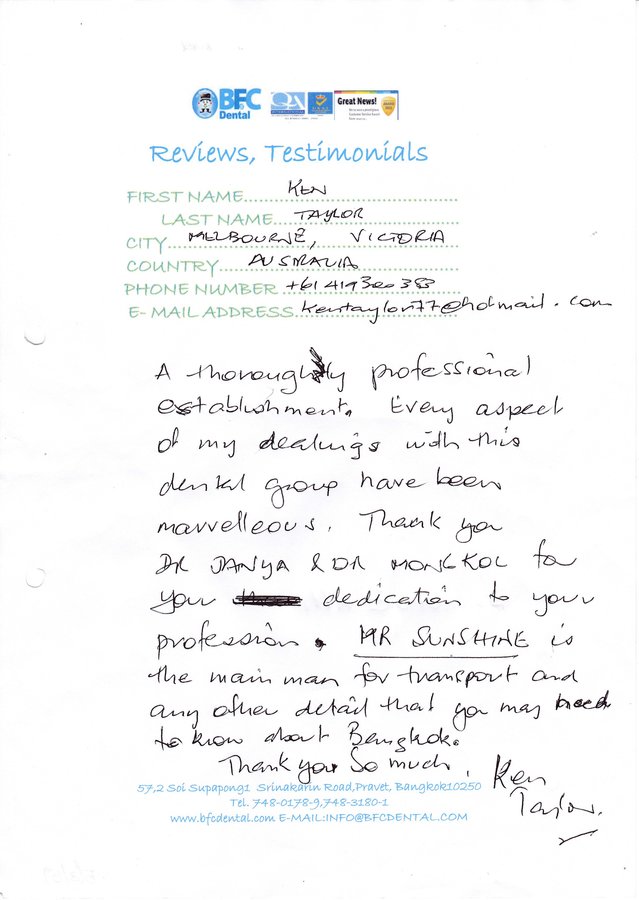 BFC
Dental
Great News!
Reviews, Testimonials
FIRST NAME........KEN........
LAST NAME....TAYLOR........
CITY....MELBOURNE, VICTORIA
COUNTRY......AUSTRALIA........
PHONE NUMBER +61 419 300 383
E-MAIL ADDRESS..kentaylor77@hotmail.com
A thoroughly professional
establishment. Every aspect
of my dealings with this
dental group have been
marvelleous. Thank you
DR JANYA & DR MONGKOL for
your dedication to your
profession. MR SUNSHINE is
the main man for transport and
any other detail that you may need
to know about Bangkok.
Thank you so much.
Ken
Taylor.
57,2 Soi Supapong1 Srinakarin Road,Pravet, Bangkok10250
Tel. 748-0178-9,748-3180-1
www.bfcdental.com E-MAIL:INFO@BFCDENTAL.COM